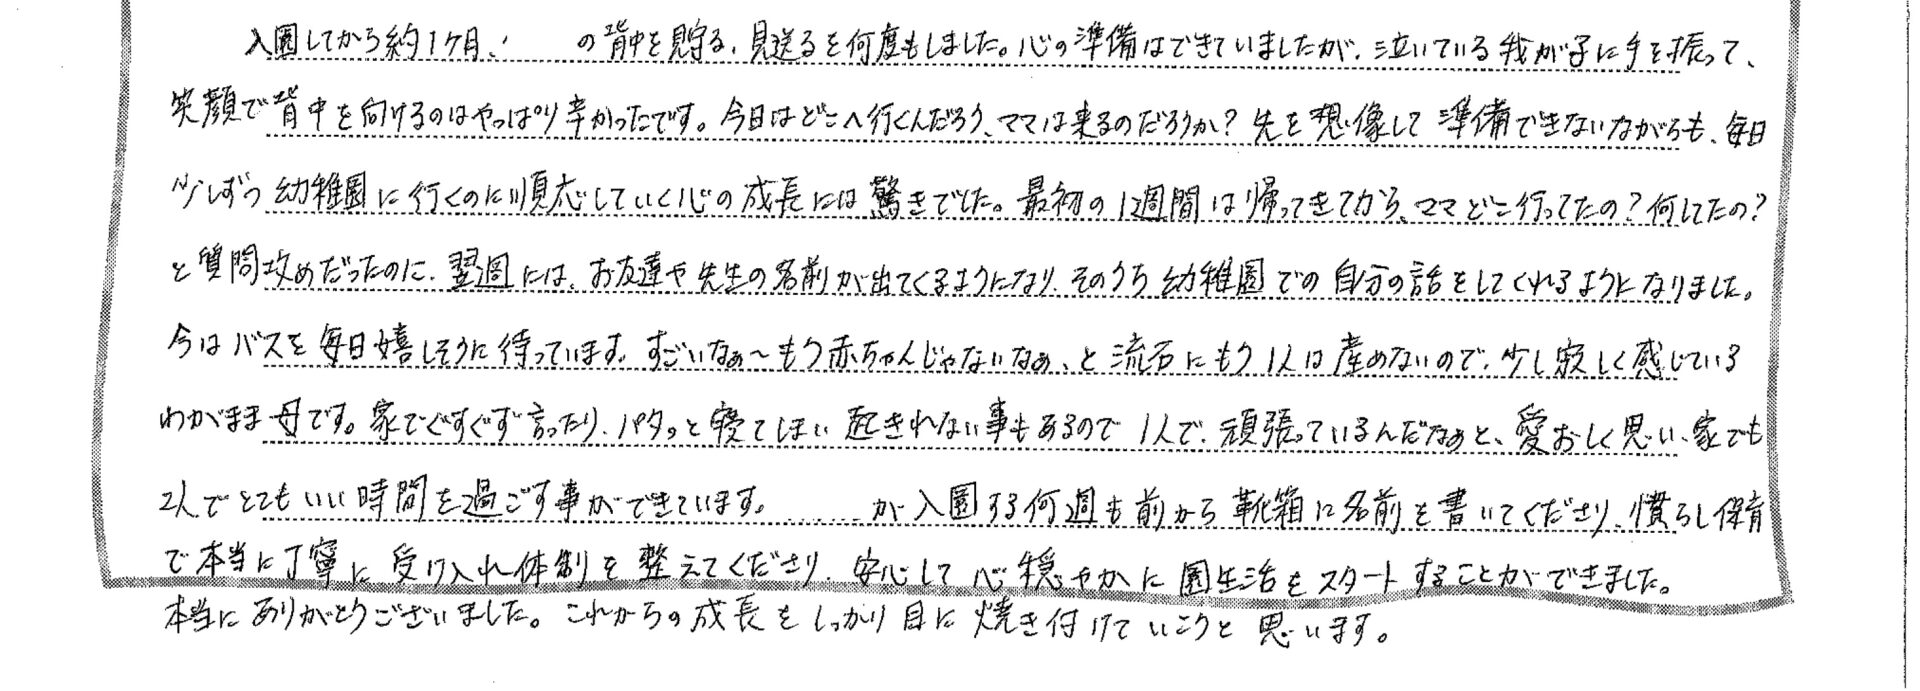 入園してから約1ヶ月、 の背中を見守る、見送るを何度もしました。心の準備はできていましたが、泣いている我が子に手を振って、
笑顔で背中を向けるのはやっぱり辛かったです。今日はどこへ行くんだろう、ママは来るのだろうか?先を想像して準備できないながらも、毎日
少しずつ幼稚園に行くのに順応していく心の成長には驚きでした。最初の1週間は帰ってきてから、ママどこ行ってたの?何してたの?
と質問攻めだったのに、翌週には、お友達や先生の名前が出てくるようになり、そのうち幼稚園での自分の話をしてくれるようになりました。
今はバスを毎日嬉しそうに待っています。すごいなぁ〜もう赤ちゃんじゃないなぁ、と流石にもう1人は産めないので、少し寂しく感じている
わがまま母です。家でぐずぐず言ったり、パタッと寝てしまい起きれない事もあるので1人で、頑張っているんだなぁと、愛おしく思い、家でも
2人でとてもいい時間を過ごす事ができています。 が入園する何週も前から靴箱に名前を書いてくださり、慣らし保育
で本当に丁寧に受け入れ体制を整えてくださり、安心して心穏やかに園生活をスタートすることができました。
本当にありがとうございました。これからの成長をしっかり目に焼き付けていこうと思います。